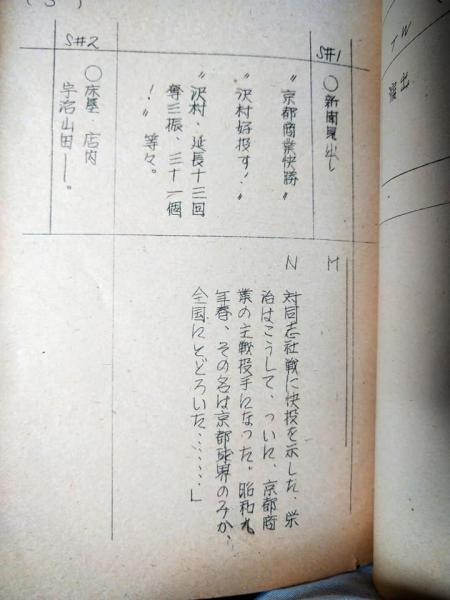 (3)
S#1
○新聞見出し
"京都商業快勝"
"沢村好投す!"
"沢村、延長十三回
奪三振、三十一個
!" 等々。
M
N
対同志社戦に快投を示した、栄
治はこうして、ついに、京都商
業の主戦投手になった。昭和九
年春、その名は京都球界のみか、
全国にとどろいた……」
S#2
○床屋・店内
宇治山田――。